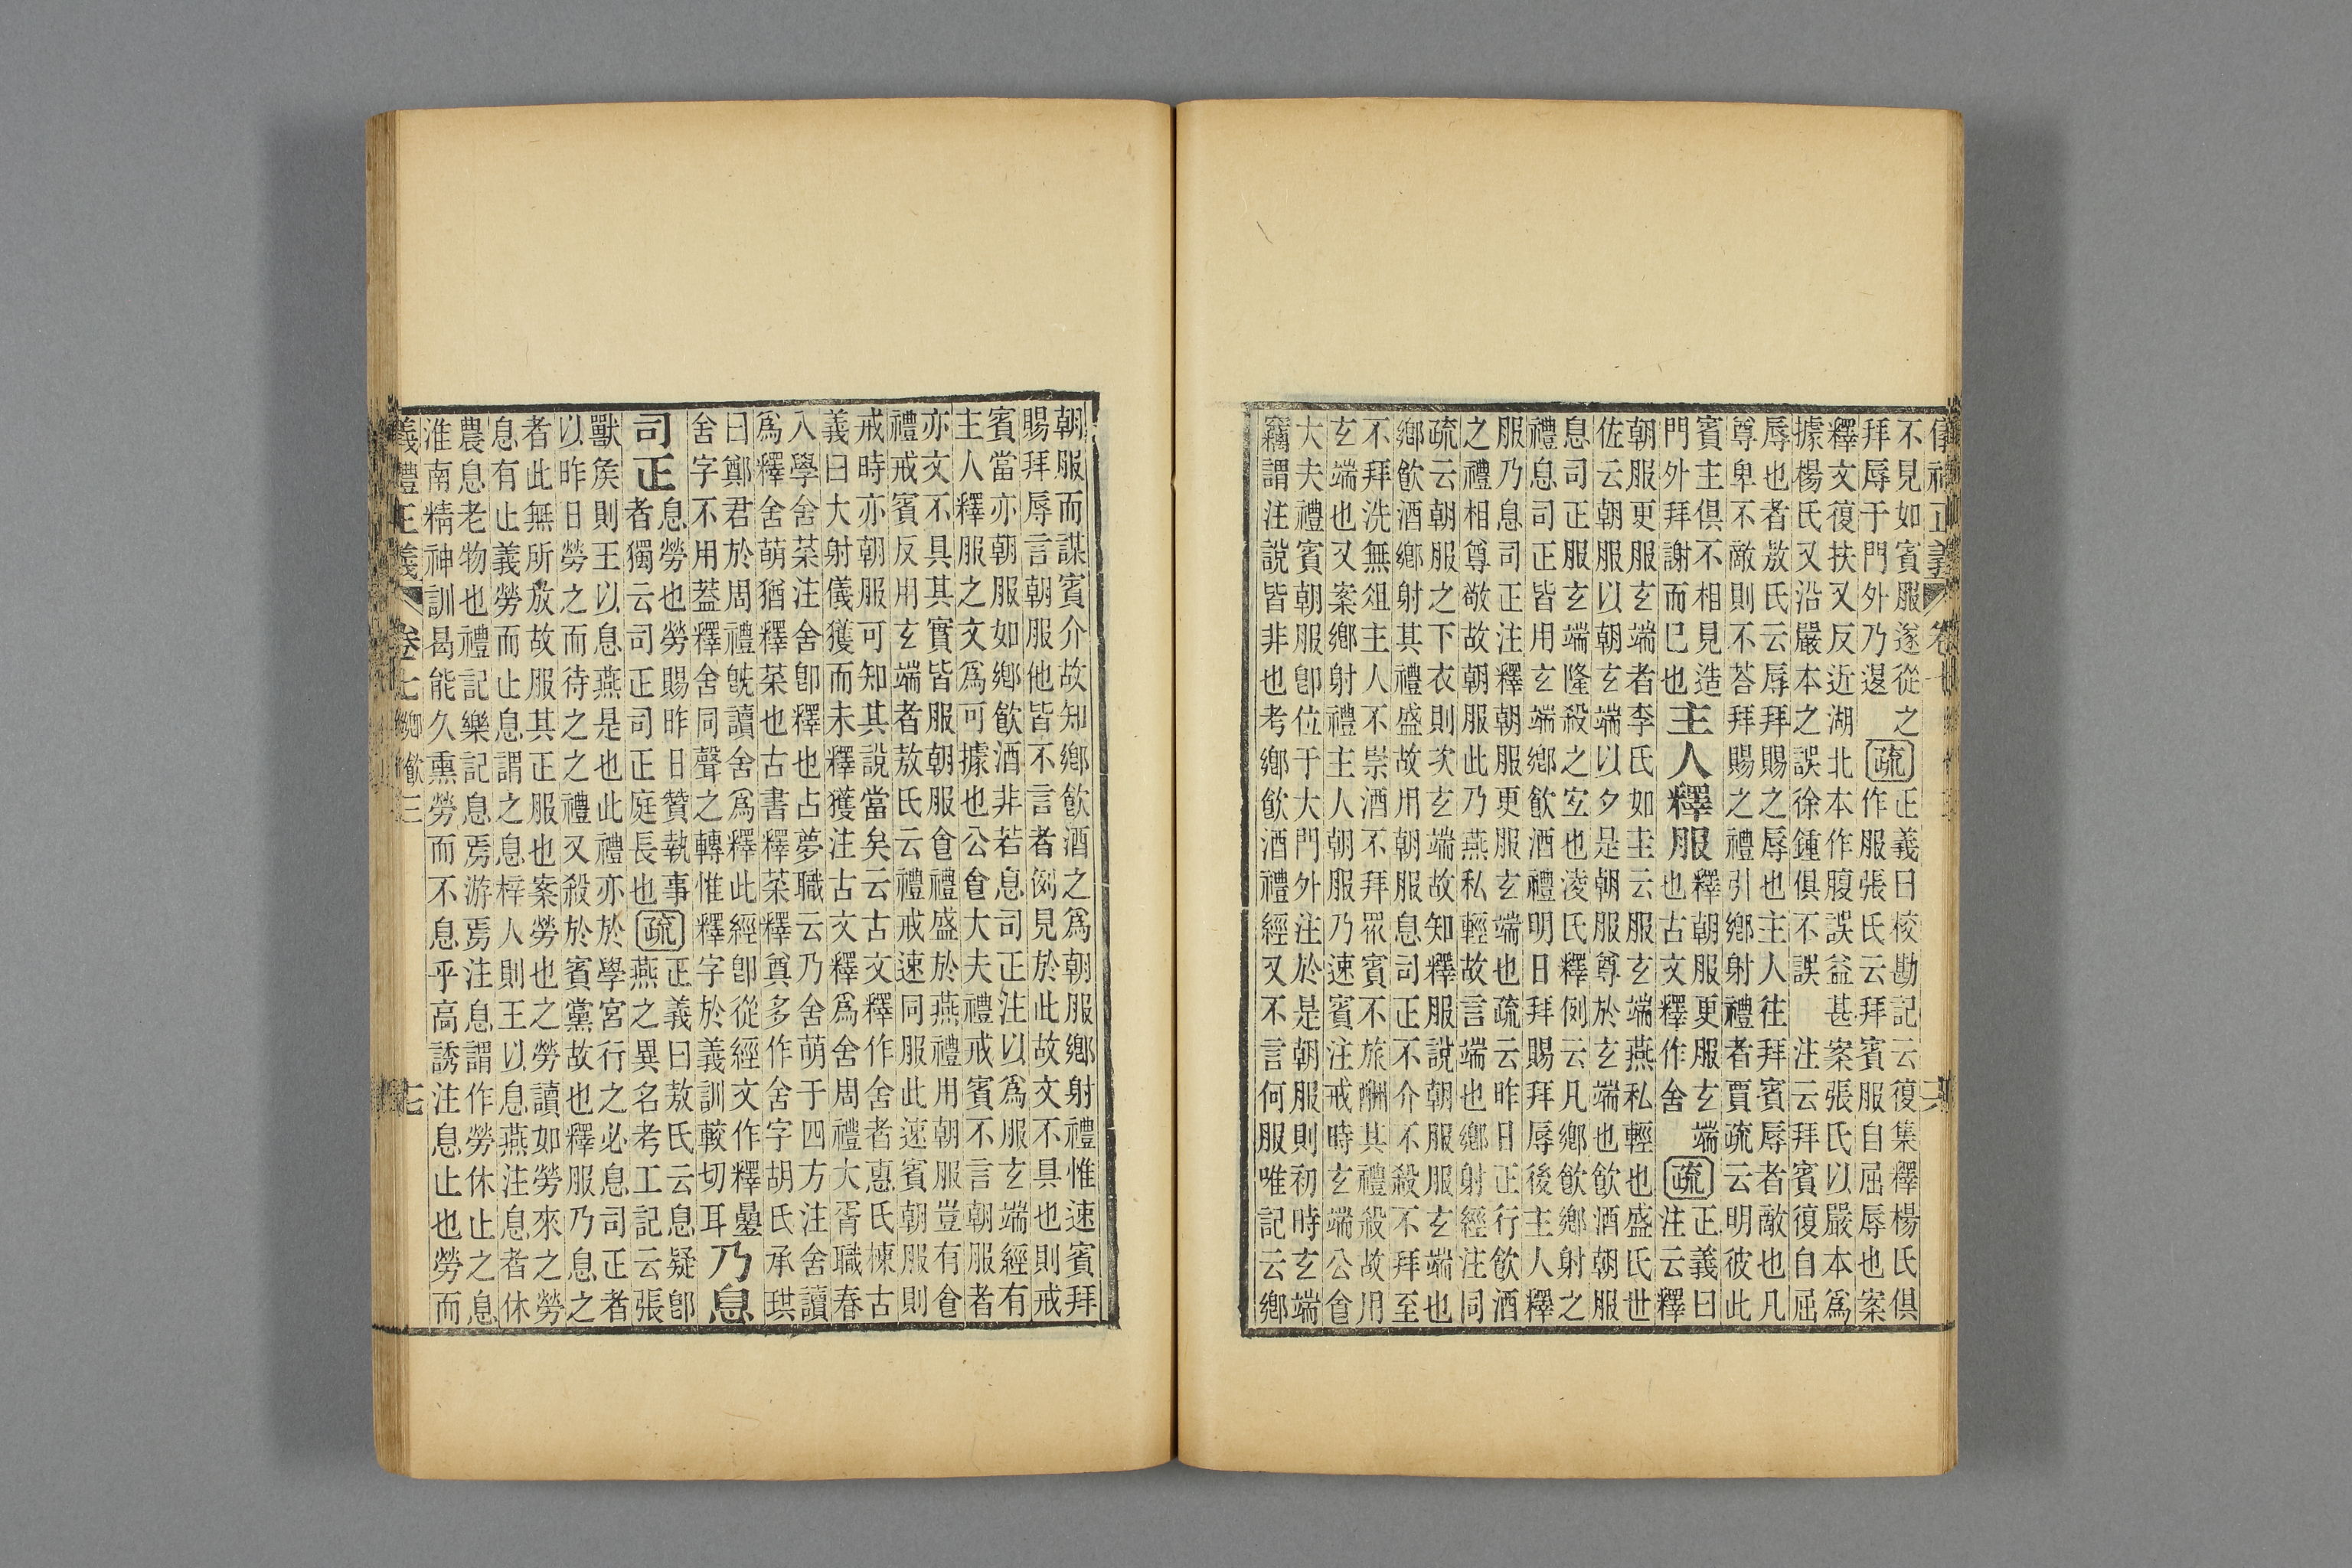 不見如賓服遂從之　正義曰校勘記云復集釋楊氏俱
拜辱于門外乃還　疏作服張氏云拜賓服自屈辱也案
釋文復扶又反近湖北本作腹誤益甚案張氏以嚴本爲
據楊氏又沿嚴本之誤徐鍾俱不誤　注云拜賓復自屈
辱也者敖氏云辱拜賜之辱也主人往拜賓辱者敵也凡
尊卑不敵則不荅拜賜之禮引鄉射禮者賈疏云明彼此
賓主俱不相見造
門外拜謝而已也
主人釋服
釋朝服更服玄端　正義曰
也古文釋作舍　疏注云釋
朝服更服玄端者李氏如主云服玄端燕私輕也盛氏世
佐云朝服以朝玄端以夕是朝服尊於玄端也飲酒朝服
息司正服玄端隆殺之宐也淩氏釋例云凡鄉飲鄉射之
禮息司正皆用玄端鄉飲酒禮明日拜賜拜辱後主人釋
服乃息司正注釋朝服更服玄端也疏云昨日正行飲酒
之禮相尊敬故朝服此乃燕私輕故言端也鄉射經注同
疏云朝服之下衣則次玄端故知釋服說朝服服玄端也
鄉飲酒鄉射其禮盛故用朝服息司正不介不殺不拜至
不拜洗無俎主人不崇酒不拜眾賓不旅酬其禮殺故用
玄端也又案鄉射禮主人朝服乃速賓注戒時玄端公食
大夫禮賓朝服卽位于大門外注於是朝服則初時玄端
竊謂注說皆非也考鄉飲酒禮經又不言何服唯記云鄉
朝服而謀賓介故知鄉飲酒之爲朝服鄉射禮惟速賓拜
賜拜辱言朝服他皆不言者例見於此故文不具也則戒
賓當亦朝服如鄉飲酒非若息司正注以爲服玄端經有
主人釋服之文爲可據也公食大夫禮戒賓不言朝服者
亦文不具其實皆服朝服食禮盛於燕禮用朝服豈有食
禮戒賓反用玄端者敖氏云禮戒速同服此速賓朝服則
戒時亦朝服可知其說當矣云古文釋作舍者惠氏棟古
義曰大射儀獲而未釋獲注古文釋爲舍周禮大胥職春
入學舍菜注舍卽釋也占夢職云乃舍萌于四方注舍讀
爲釋舍萌猶釋菜也古書釋菜釋奠多作舍字胡氏承珙
曰鄭君於周禮旣讀舍爲釋此經卽從經文作釋曡
舍字不用蓋釋舍同聲之轉惟釋字於義訓較切耳
乃息
司正
息勞也勞賜昨日贊執事　正義曰敖氏云息疑卽
者獨云司正司正庭長也　疏燕之異名考工記云張
獸侯則王以息燕是也此禮亦於學宮行之必息司正者
以昨日勞之而待之之禮又殺於賓黨故也釋服乃息之
者此無所放故服其正服也案勞也之勞讀如勞來之勞
息有止義勞而止息謂之息梓人則王以息燕注息者休
農息老物也禮記樂記息焉游焉注息謂作勞休止之息
淮南精神訓曷能久熏勞而不息乎高誘注息止也勞而
禮正義　卷七　鄉飲三